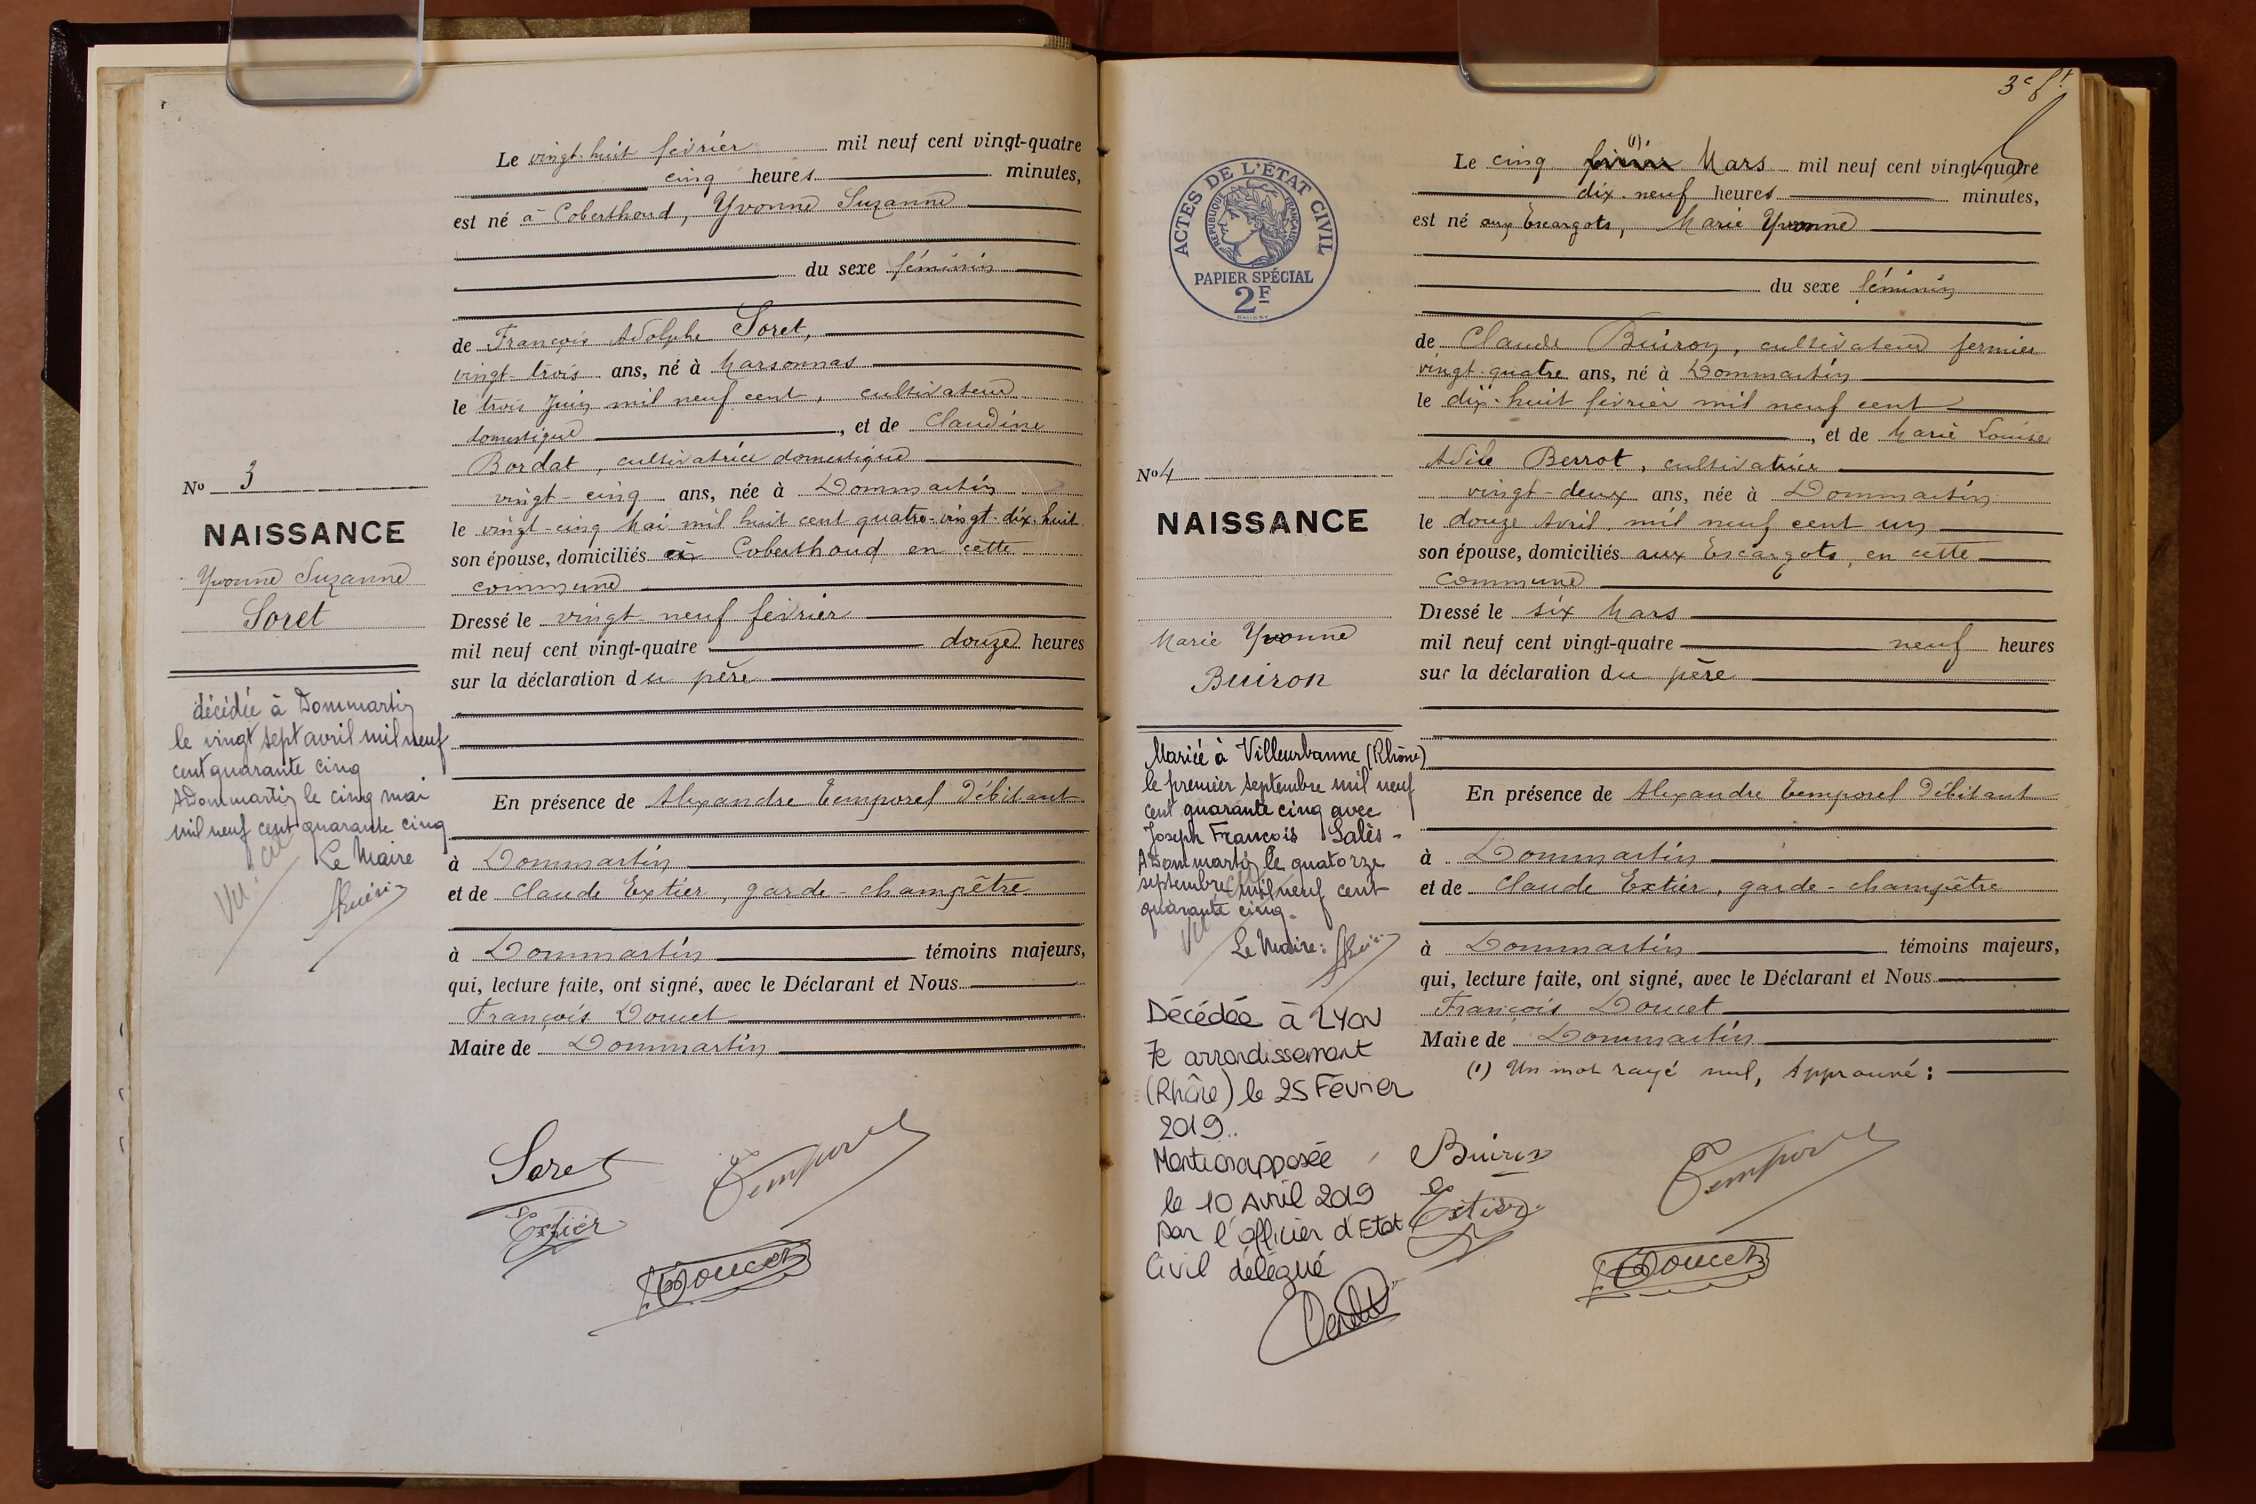 Le vingt-huit février mil neuf cent vingt-quatre
cinq heures minutes,
est né à Coberthoud, Yvonne Suzanne
du sexe féminin
de François Adolphe Soret,
vingt-trois ans, né à Marsonnas
le trois Juin mil neuf cent, cultivateur
domestique, et de Claudine
Bordat, cultivatrice domestique
vingt-cinq ans, née à Dommartin
le vingt-cinq Mai mil huit cent quatre-vingt-dix-huit
son épouse, domiciliés à Coberthoud en cette
commune
Dressé le vingt-neuf février
mil neuf cent vingt-quatre douze heures
sur la déclaration du père
En présence de Alexandre Temporel Débitant
à Dommartin
et de Claude Extier, garde-champêtre
à Dommartin témoins majeurs,
qui, lecture faite, ont signé, avec le Déclarant et Nous
François Doucet
Maire de Dommartin
Soret
Temporel
Extier
Doucet
No 3
NAISSANCE
Yvonne Suzanne
Soret
décédée à Dommartin
le vingt sept avril mil neuf
cent quarante cinq
A Dommartin le cinq mai
mil neuf cent quarante cinq
Le Maire
Vu
3e ft
ACTES DE L'ÉTAT CIVIL
RÉPUBLIQUE FRANÇAISE
PAPIER SPÉCIAL
2F
Le cinq février (1) Mars mil neuf cent vingt-quatre
dix-neuf heures minutes,
est né aux Escargots, Marie Yvonne
du sexe féminin
de Claude Buiron, cultivateur fermier
vingt-quatre ans, né à Dommartin
le dix-huit février mil neuf cent
, et de Marie Louise
Adèle Berrot, cultivatrice
vingt-deux ans, née à Dommartin
le douze Avril mil neuf cent un
son épouse, domiciliés aux Escargots, en cette
commune
Dressé le six Mars
mil neuf cent vingt-quatre neuf heures
sur la déclaration du père
En présence de Alexandre Temporel Débitant
à Dommartin
et de Claude Extier, garde-champêtre
à Dommartin témoins majeurs,
qui, lecture faite, ont signé, avec le Déclarant et Nous
François Doucet
Maire de Dommartin
(1) Un mot rayé nul, Approuvé :
Buiron
Temporel
Extier
Doucet
No 4
NAISSANCE
Marie Yvonne
Buiron
Mariée à Villeurbanne (Rhône)
le premier septembre mil neuf
cent quarante cinq avec
Joseph François Salès -
A Dommartin le quatorze
septembre mil neuf cent
quarante cinq.
Vu
Le Maire :
Décédée à LYON
7e arrondissement
(Rhône) le 25 Février
2019..
Mention apposée
le 10 Avril 2019
par l'officier d'Etat
Civil délégué